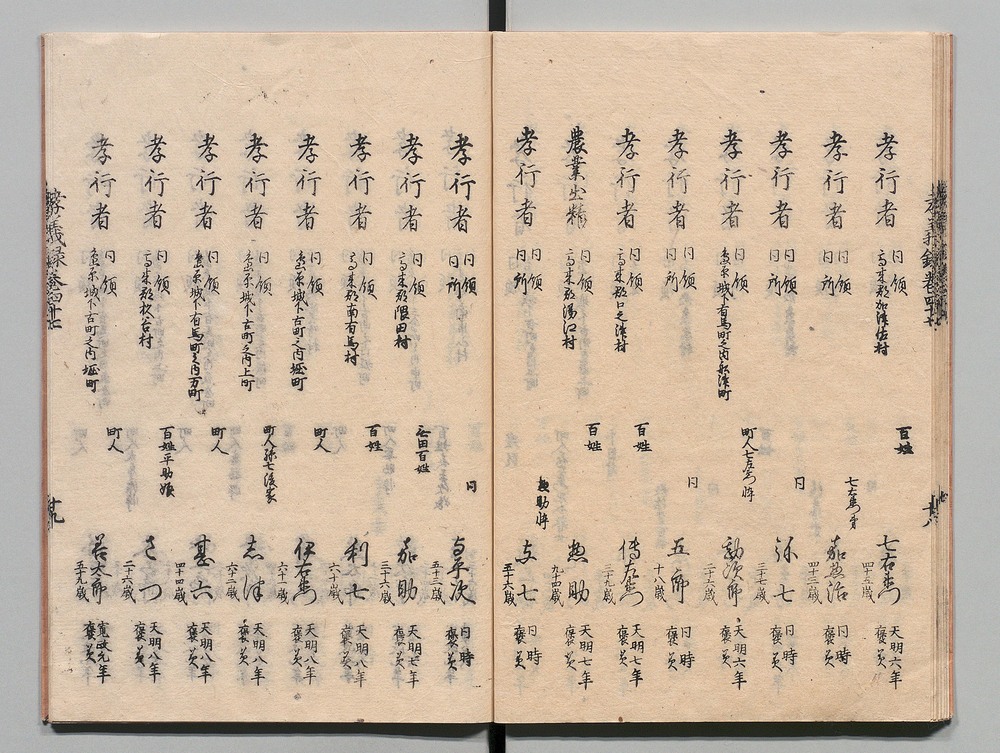 孝行者 同領 高来郡加津佐村 百姓 七右衛門 四十五歳 天明六年 褒美
孝行者 同領 同所 七右衛門弟 茄惣治 四十三歳 同時 褒美
孝行者 同領 同所 同 弥七 三十七歳 同時 褒美
孝行者 同領 島原城下有馬町之内船津町 町人七左衛門忰 勘次郎 二十六歳 天明六年 褒美
孝行者 同領 同所 同 五郎 十八歳 同時 褒美
孝行者 同領 高来郡口之津村 百姓 傳左衛門 三十九歳 天明七年 褒美
農業出精 同領 高来郡湯江村 百姓 惣助 九十四歳 天明七年 褒美
孝行者 同領 同所 惣助忰 与七 五十六歳 同時 褒美
孝行者 同領 同所 同 与平次 五十三歳 同時 褒美
孝行者 同領 高来郡隈田村 百姓 茄助 三十六歳 天明七年 褒美
孝行者 同領 高来郡南有馬村 百姓 利七 六十歳 天明八年 褒美
孝行者 同領 島原城下古町之内堀町 町人 伊右衛門 六十一歳 天明八年 褒美
孝行者 同領 島原城下古町之内上町 町人弥七後家 志津 六十二歳 天明八年 褒美
孝行者 同領 島原城下有馬町之内万町 町人 甚六 四十四歳 天明八年 褒美
孝行者 同領 高来郡杉谷村 百姓平助娘 さつ 二十六歳 天明八年 褒美
孝行者 同領 島原城下古町之内堀町 町人 善太郎 五十九歳 寛政元年 褒美
孝義録巻四十七